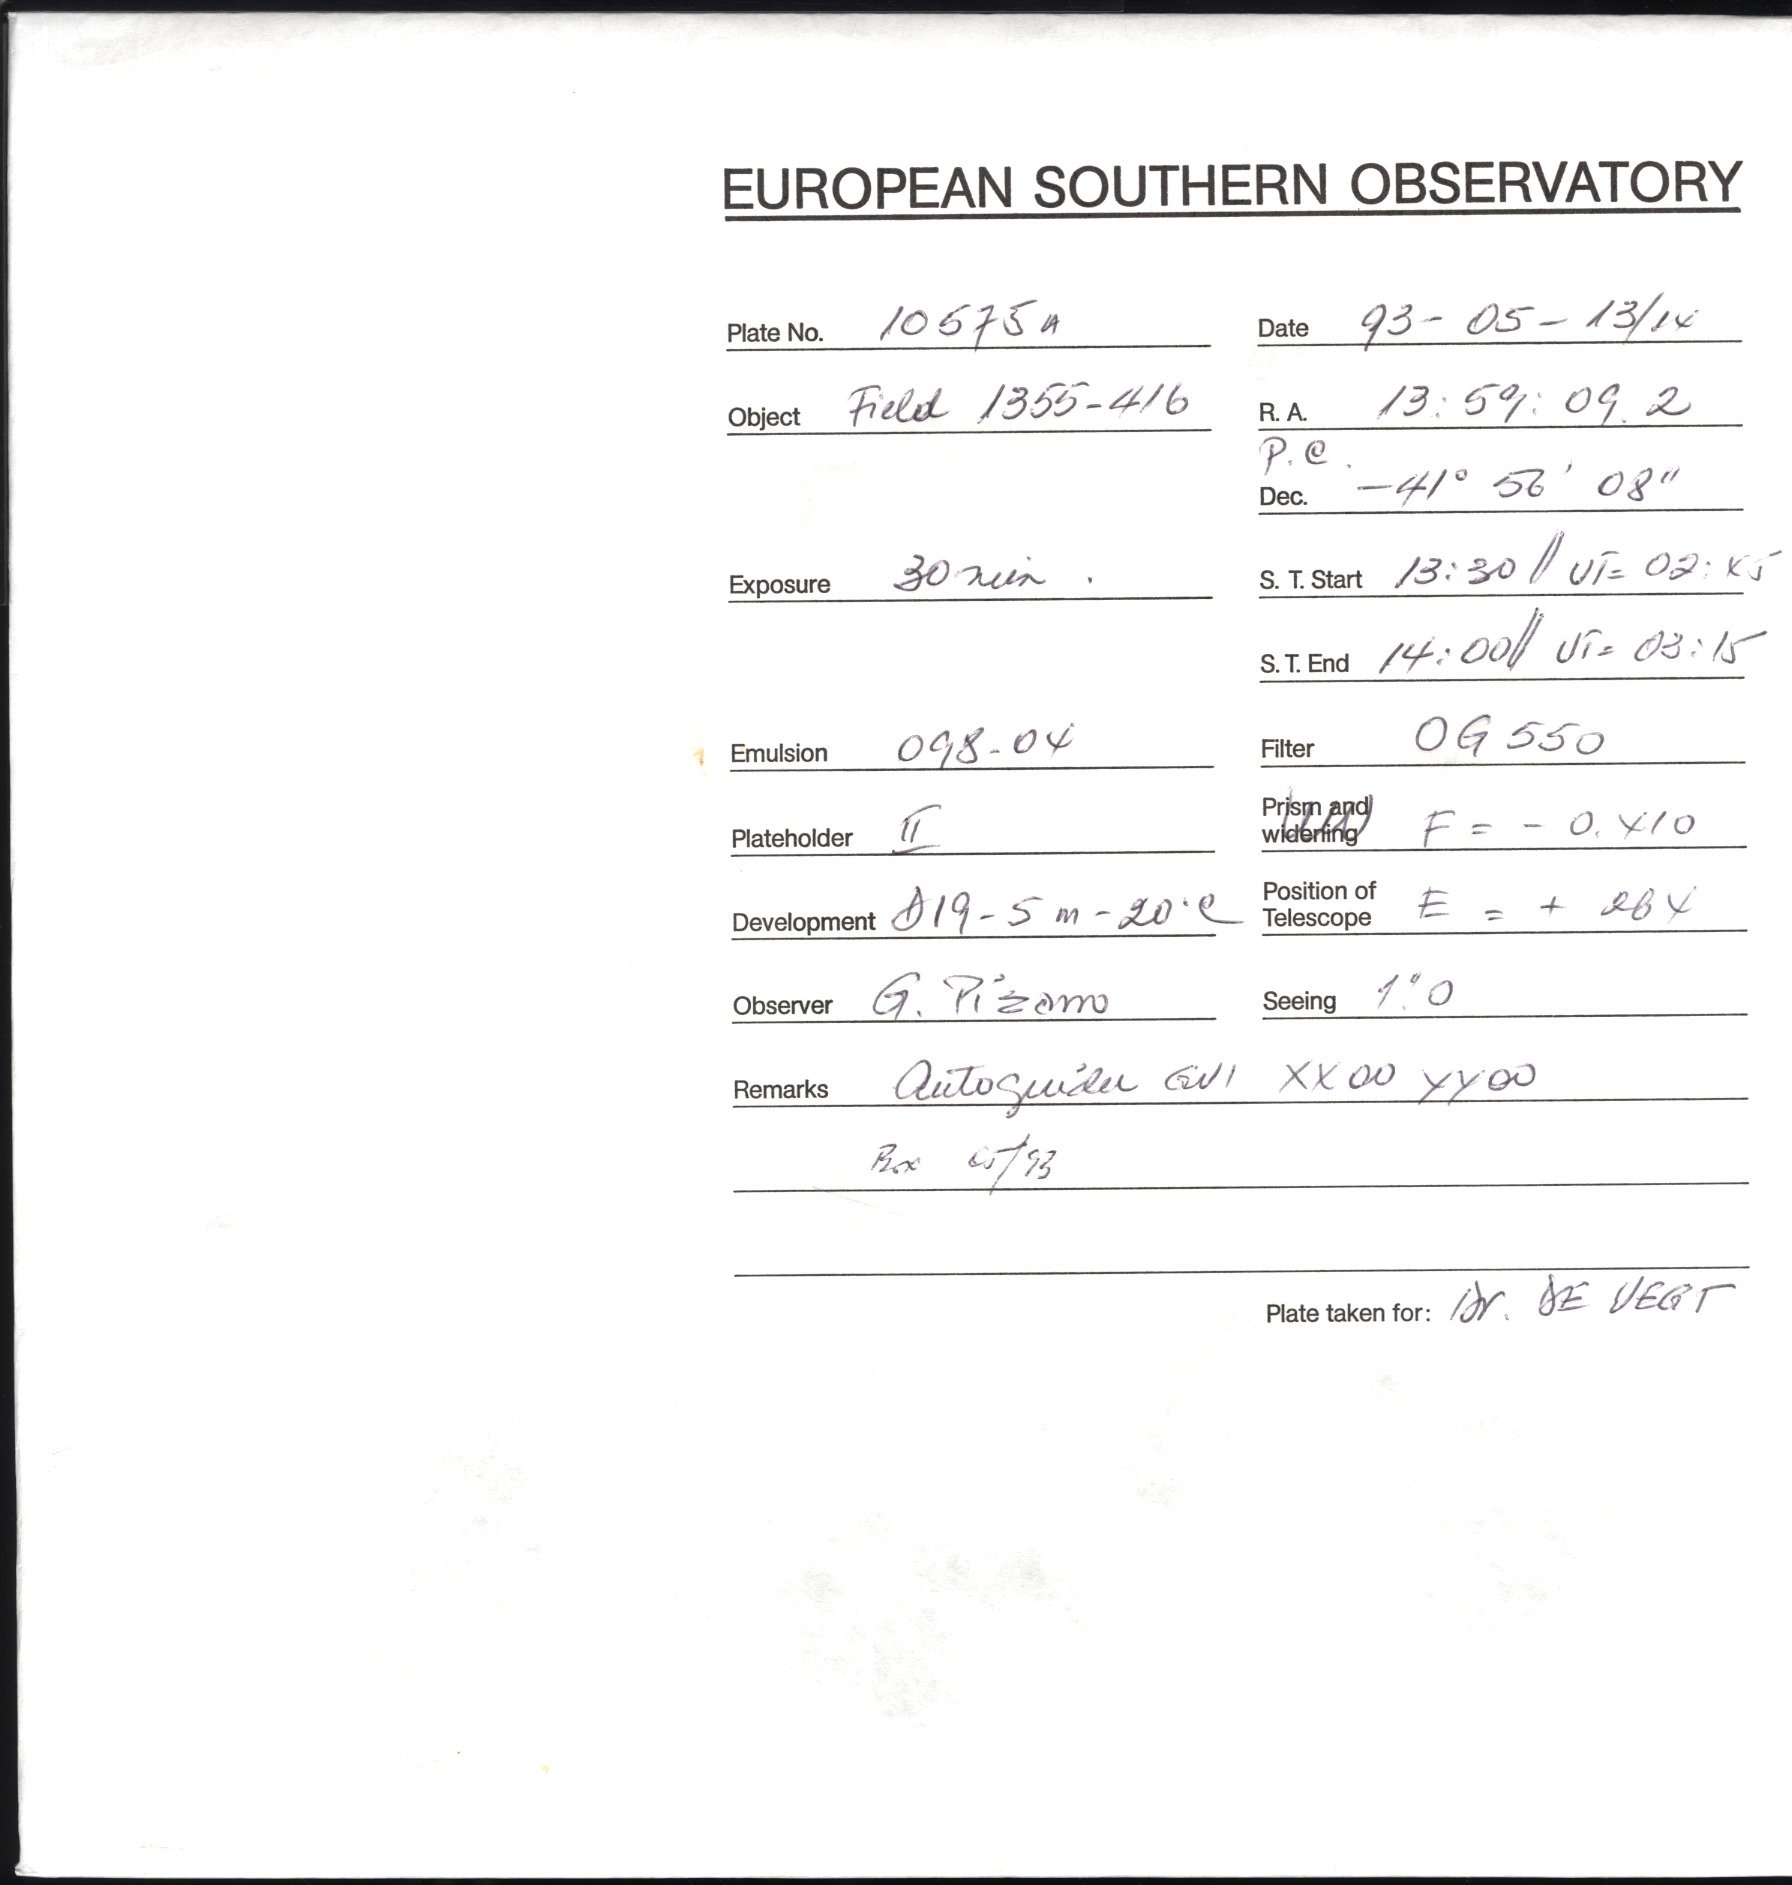 EUROPEAN SOUTHERN OBSERVATORY
Plate No. 10575A
Date 93-05-13/14
Object Field 1355-416
R. A. 13:59:09.2
P.C.
Dec. -41° 56' 08"
Exposure 30 min.
S. T. Start 13:30 // UT= 02:45
S. T. End 14:00 // UT= 03:15
Emulsion 098-04
Filter OG 550
Plateholder II
Prism and widening F = - 0.410
Development D19-5m-20°C
Position of Telescope E = + 264
Observer G. Pizarro
Seeing 1".0
Remarks Autoguider XX00 YY00
Box 05/93
Plate taken for: Dr. DE VEGT